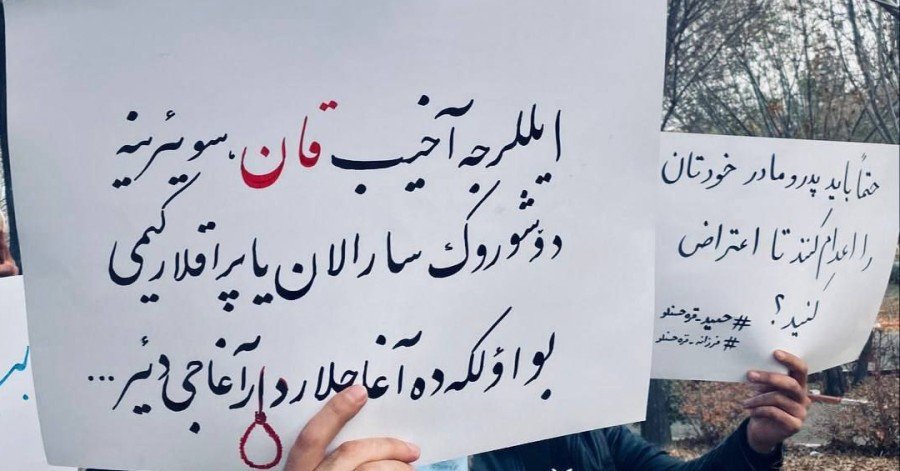 ایللرجه آخیب قان، سویئرینه
دۆشوروک سارالان یاپراقلار کیمی
بو اؤلکه ده آغاجلار دار آغاجی دئیر...
حتماً باید پدر و مادر خودتان
را اعدام کنند تا اعتراض
کنید؟
#حمید_قره‌حسنلو
#فرزانه_قره‌حسنلو